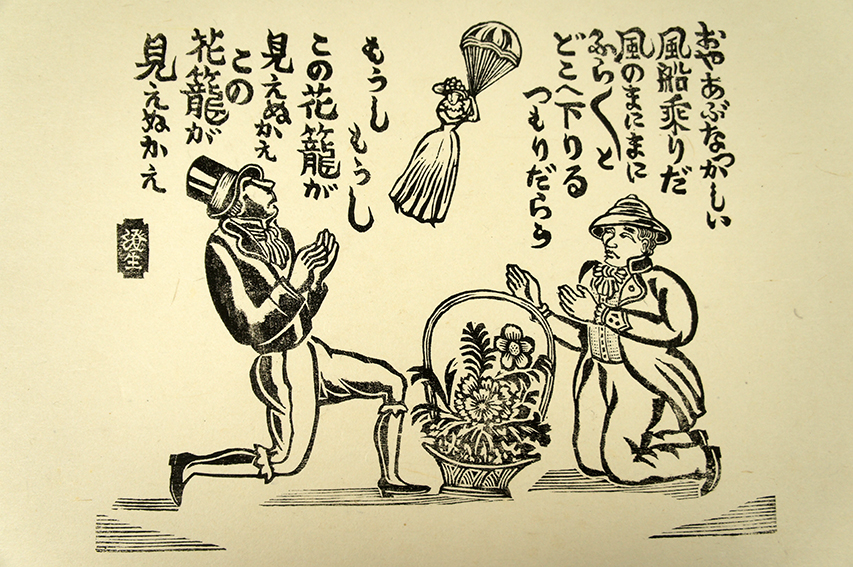 おやあぶなつかしい
風船乗りだ
風のまにまに
ふら〱と
どこへ下りる
つもりだらう
もうしもうし
この花籠が
見えぬかえ
この
花籠が
見えぬかえ
澄生